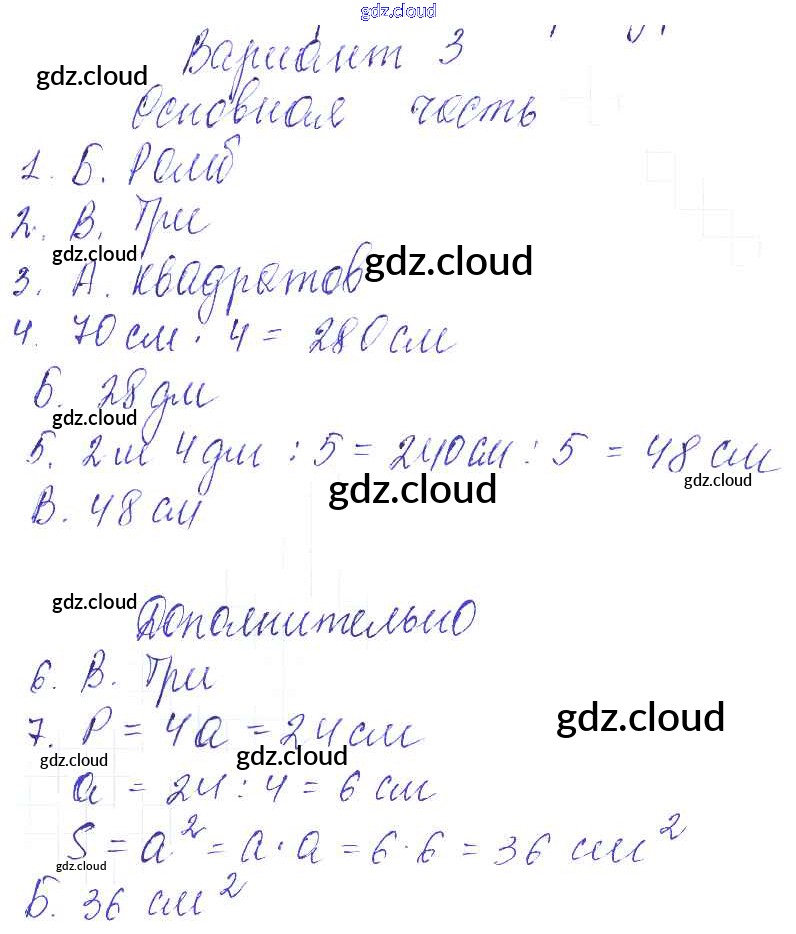 gdz.cloud
Вариант 3
gdz.cloud
Основная часть
1. Б. Ромб
2. В. Три
gdz.cloud
3. А. квадратов gdz.cloud
4. 70 см · 4 = 280 см
Б. 28 дм
gdz.cloud
5. 2 м 4 дм : 5 = 240 см : 5 = 48 см
gdz.cloud
gdz.cloud
В. 48 см
gdz.cloud
Дополнительно
6. В. Три
gdz.cloud
7. P = 4a = 24 см
gdz.cloud gdz.cloud
a = 24 : 4 = 6 см
S = a² = a · a = 6 · 6 = 36 см²
gdz.cloud
Б. 36 см²